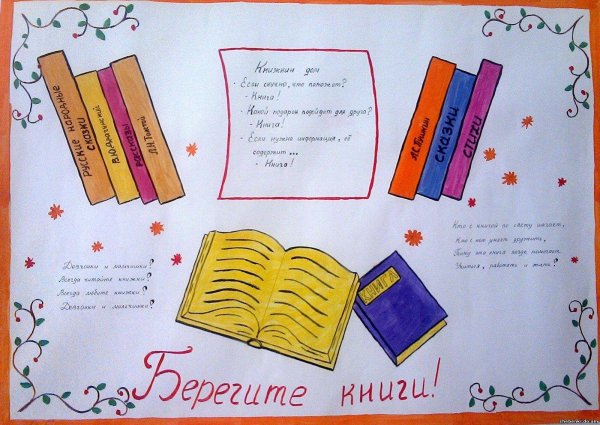 русские народные
сказки
В.Ю.Драгунский
рассказы
Л.Н.Толстой
Книжкин дом
- Если скучно, что поможет?
- Книга!
- Какой подарок подойдет для друга?
- Книга!
- Если нужна информация, её
содержит ...
- Книга!
А.С.Пушкин
сказки
стихи
Девчонки и мальчишки!
Всегда читайте книжки!
Всегда любите книжки!
Девчонки и мальчишки!
Кто с книгой по свету шагает,
Кто с ней умеет дружить,
Тому эта книга всегда помогает
Учиться, работать и жить!
КНИГА
Берегите книги!